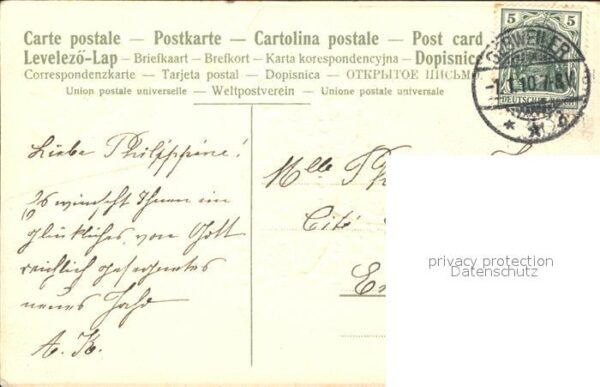 Carte postale – Postkarte – Cartolina postale – Post card
Levelező-Lap – Briefkaart – Brefkort – Karta korespondencyjna – Dopisnica
Correspondenzkarte – Tarjeta postal – Dopisnica – ОТКРЫТОЕ ПИСЬМ
Union postale universelle – Weltpostverein – Unione postale universale
5 5
DEUTSCHES
GEBWEILER
-1.1.10.7-8V
Liebe Philippine!
Es wünscht Ihnen ein
glückliches, von Gott
reichlich gesegnetes
neues Jahr
A. K.
Mlle Ph
Cité
privacy protection
Datenschutz